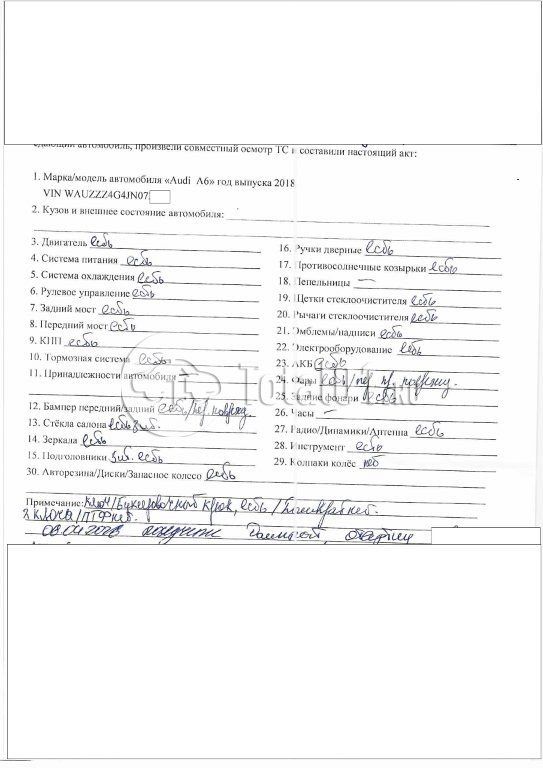 едающий автомобиль, произвели совместный осмотр ТС и составили настоящий акт:
1. Марка/модель автомобиля «Audi A6» год выпуска 2018
VIN WAUZZZ4G4JN07
2. Кузов и внешнее состояние автомобиля:
3. Двигатель есть
4. Система питания есть
5. Система охлаждения есть
6. Рулевое управление есть
7. Задний мост есть
8. Передний мост есть
9. КПП есть
10. Тормозная система есть
11. Принадлежности автомобиля –
12. Бампер передний/задний есть/пер. поврежд.
13. Стёкла салона есть
14. Зеркала есть
15. Подголовники есть
30. Авторезина/Диски/Запасное колесо есть
16. Ручки дверные есть
17. Противосолнечные козырьки есть
18. Пепельницы –
19. Щетки стеклоочистителя есть
20. Рычаги стеклоочистителя есть
21. Эмблемы/надписи есть
22. Электрооборудование есть
23. АКБ есть
24. Фары есть/пер. пр. поврежд.
25. Задние фонари есть
26. Часы –
27. Радио/Динамики/Антенна есть
28. Инструмент есть
29. Колпаки колёс нет
Total01
Примечание: ключ/Буксировочной крюк, есть/